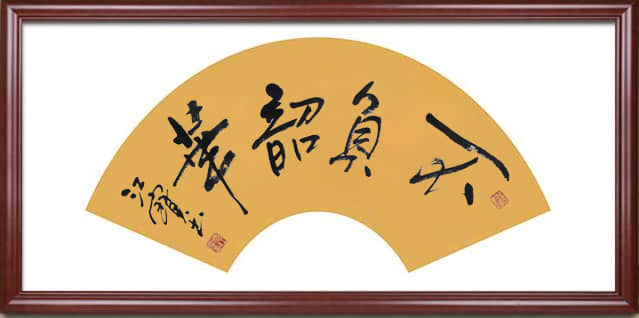 不負韶華
江